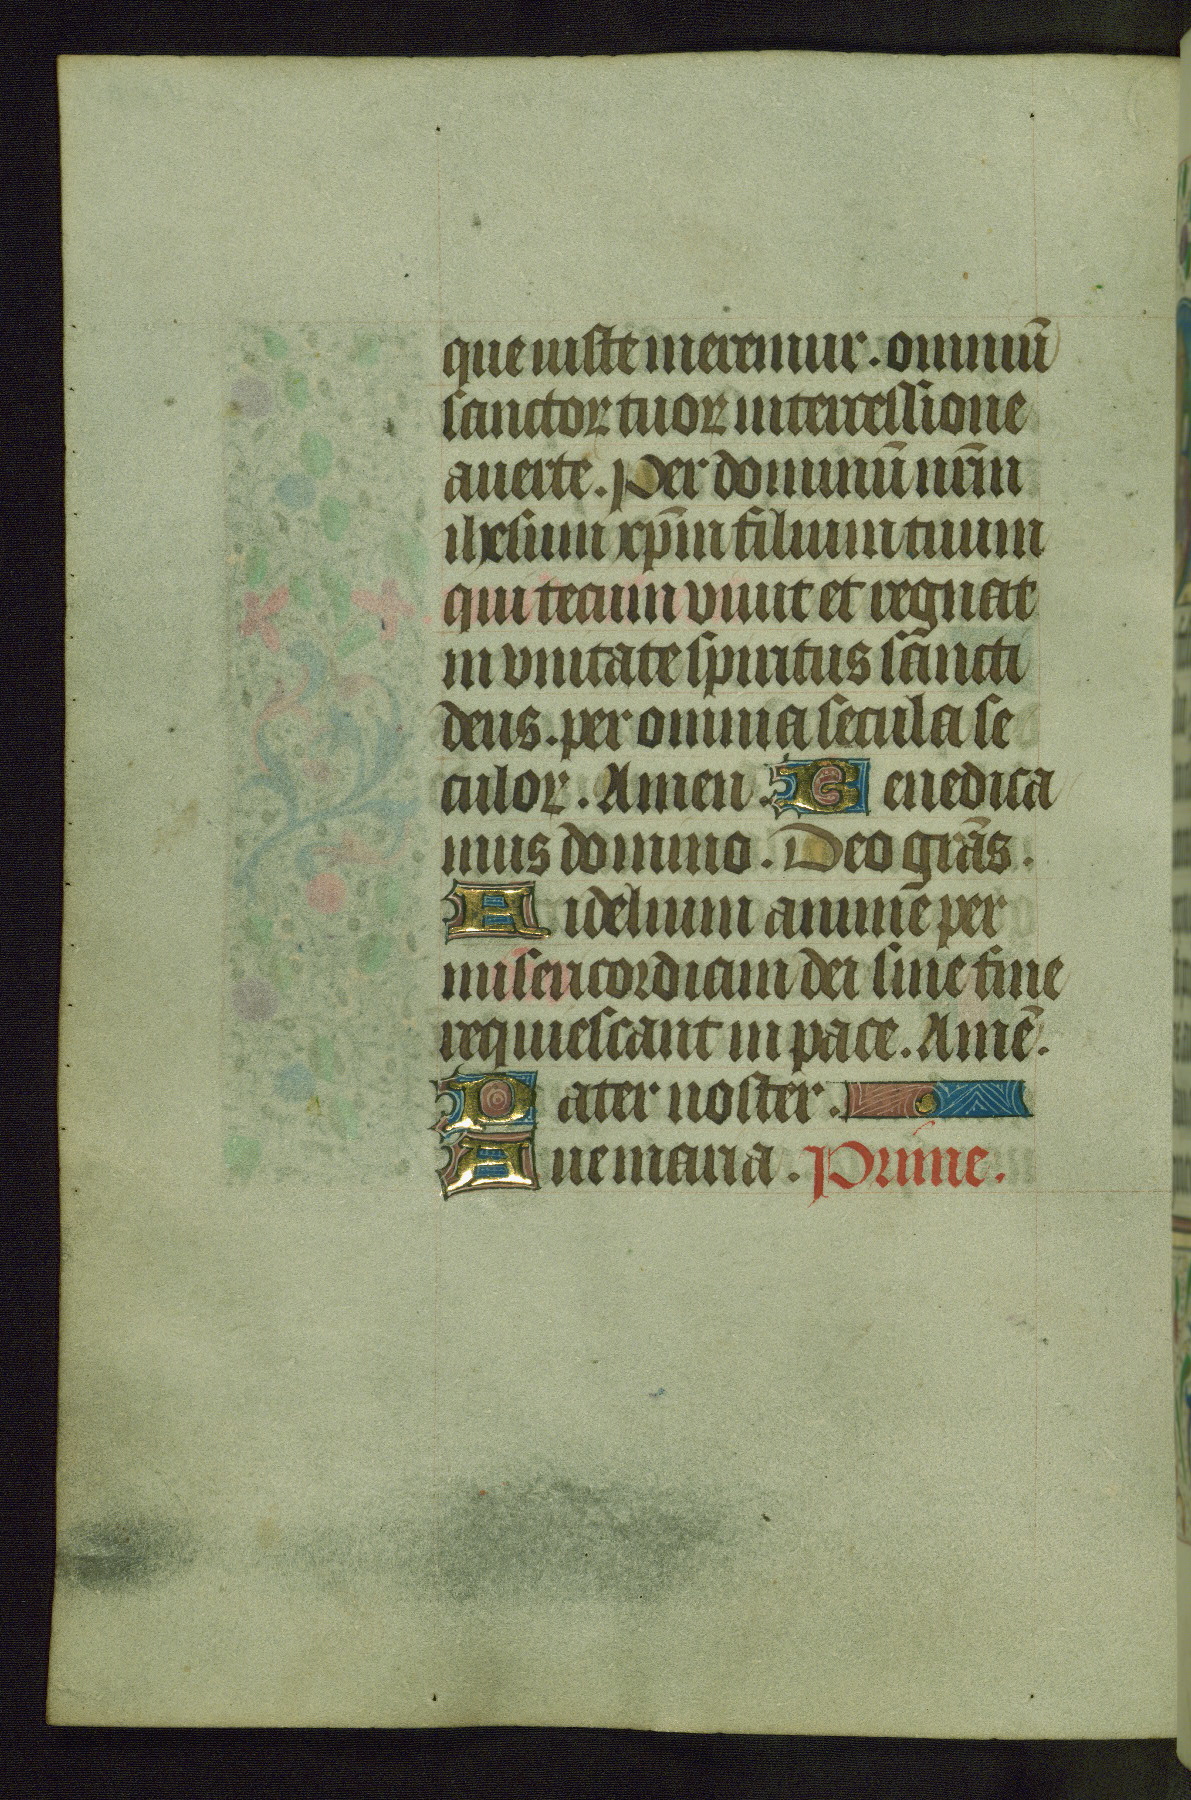 que iuste meremur. omniū
sanctoꝝ tuoꝝ intercessione
auerte. Per dominū nr̄m
ihesum xp̄m filium tuum
qui tecum viuit et regnat
in vnitate spiritus sācti
deus. per omnia secula se
culoꝝ. Amen. Benedica
mus domino. Deo grās.
Fidelium animē per
misericordiam dei sine fine
requiescant in pace. Amē.
Pater noster.
Aue maria. Prime.